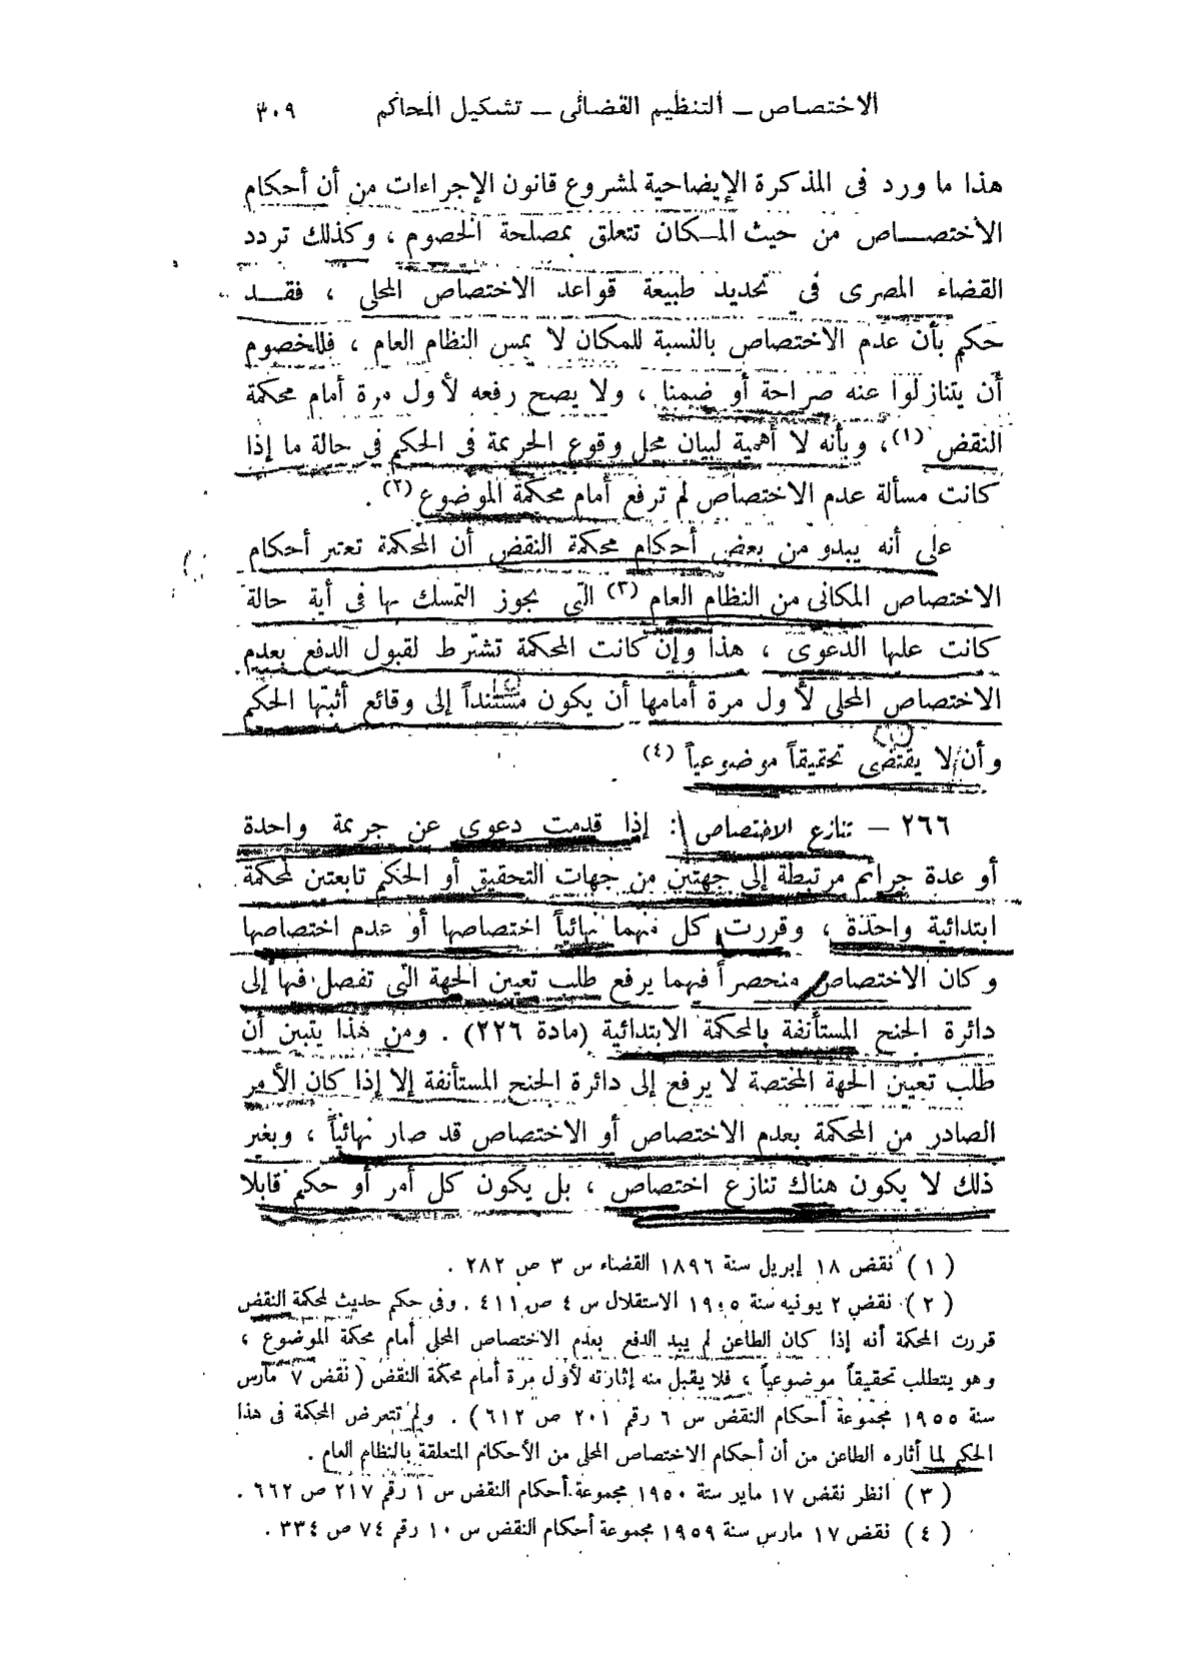 الاختصاص – التنظيم القضائى – تشكيل المحاكم ٣٠٩
هذا ما ورد فى المذكرة الإيضاحية لمشروع قانون الإجراءات من أن أحكام
الاختصاص من حيث المكان تتعلق بمصلحة الخصوم ، وكذلك تردد
القضاء المصرى فى تحديد طبيعة قواعد الاختصاص المحلى ، فقد
حكم بأن عدم الاختصاص بالنسبة للمكان لا يمس النظام العام ، فللخصوم
أن يتنازلوا عنه صراحة أو ضمنا ، ولا يصح رفعه لأول مرة أمام محكمة
النقض (١) ، وبأنه لا أهمية لبيان محل وقوع الجريمة فى الحكم فى حالة ما إذا
كانت مسألة عدم الاختصاص لم ترفع أمام محكمة الموضوع (٢) .
على أنه يبدو من بعض أحكام محكمة النقض أن المحكمة تعتبر أحكام
الاختصاص المكانى من النظام العام (٣) التى يجوز التمسك بها فى أية حالة
كانت عليها الدعوى ، هذا وإن كانت المحكمة تشترط لقبول الدفع بعدم
الاختصاص المحلى لأول مرة أمامها أن يكون مستنداً إلى وقائع أثبتها الحكم
وأن لا يقتضى تحقيقاً موضوعياً (٤)
٢٦٦ – تنازع الاختصاص : إذا قدمت دعوى عن جريمة واحدة
أو عدة جرائم مرتبطة إلى جهتين من جهات التحقيق أو الحكم تابعتين لمحكمة
ابتدائية واحدة ، وقررت كل منهما نهائياً اختصاصها أو عدم اختصاصها
وكان الاختصاص منحصراً فيهما يرفع طلب تعيين الجهة التى تفصل فيها إلى
دائرة الجنح المستأنفة بالمحكمة الابتدائية (مادة ٢٢٦) . ومن هذا يتبين أن
طلب تعيين الجهة المختصة لا يرفع إلى دائرة الجنح المستأنفة إلا إذا كان الأمر
الصادر من المحكمة بعدم الاختصاص أو الاختصاص قد صار نهائياً ، وبغير
ذلك لا يكون هناك تنازع اختصاص ، بل يكون كل أمر أو حكم قابلا
( ١ ) نقض ١٨ إبريل سنة ١٨٩٦ القضاء س ٣ ص ٢٨٢ .
( ٢ ) نقض ٢ يونيه سنة ١٩٠٥ الاستقلال س ٤ ص ٤١١ . وفى حكم حديث لمحكمة النقض
قررت المحكمة أنه إذا كان الطاعن لم يبد الدفع بعدم الاختصاص المحلى أمام محكمة الموضوع ،
وهو يتطلب تحقيقاً موضوعياً ، فلا يقبل منه إثارته لأول مرة أمام محكمة النقض ( نقض ٧ مارس
سنة ١٩٥٥ مجموعة أحكام النقض س ٦ رقم ٢٠١ ص ٦١٢ ) . ولم تتعرض المحكمة فى هذا
الحكم لما أثاره الطاعن من أن أحكام الاختصاص المحلى من الأحكام المتعلقة بالنظام العام .
( ٣ ) انظر نقض ١٧ ماير سنة ١٩٥٠ مجموعة أحكام النقض س ١ رقم ٢١٧ ص ٦٦٢ .
( ٤ ) نقض ١٧ مارس سنة ١٩٥٩ مجموعة أحكام النقض س ١٠ رقم ٧٤ ص ٣٣٤ .